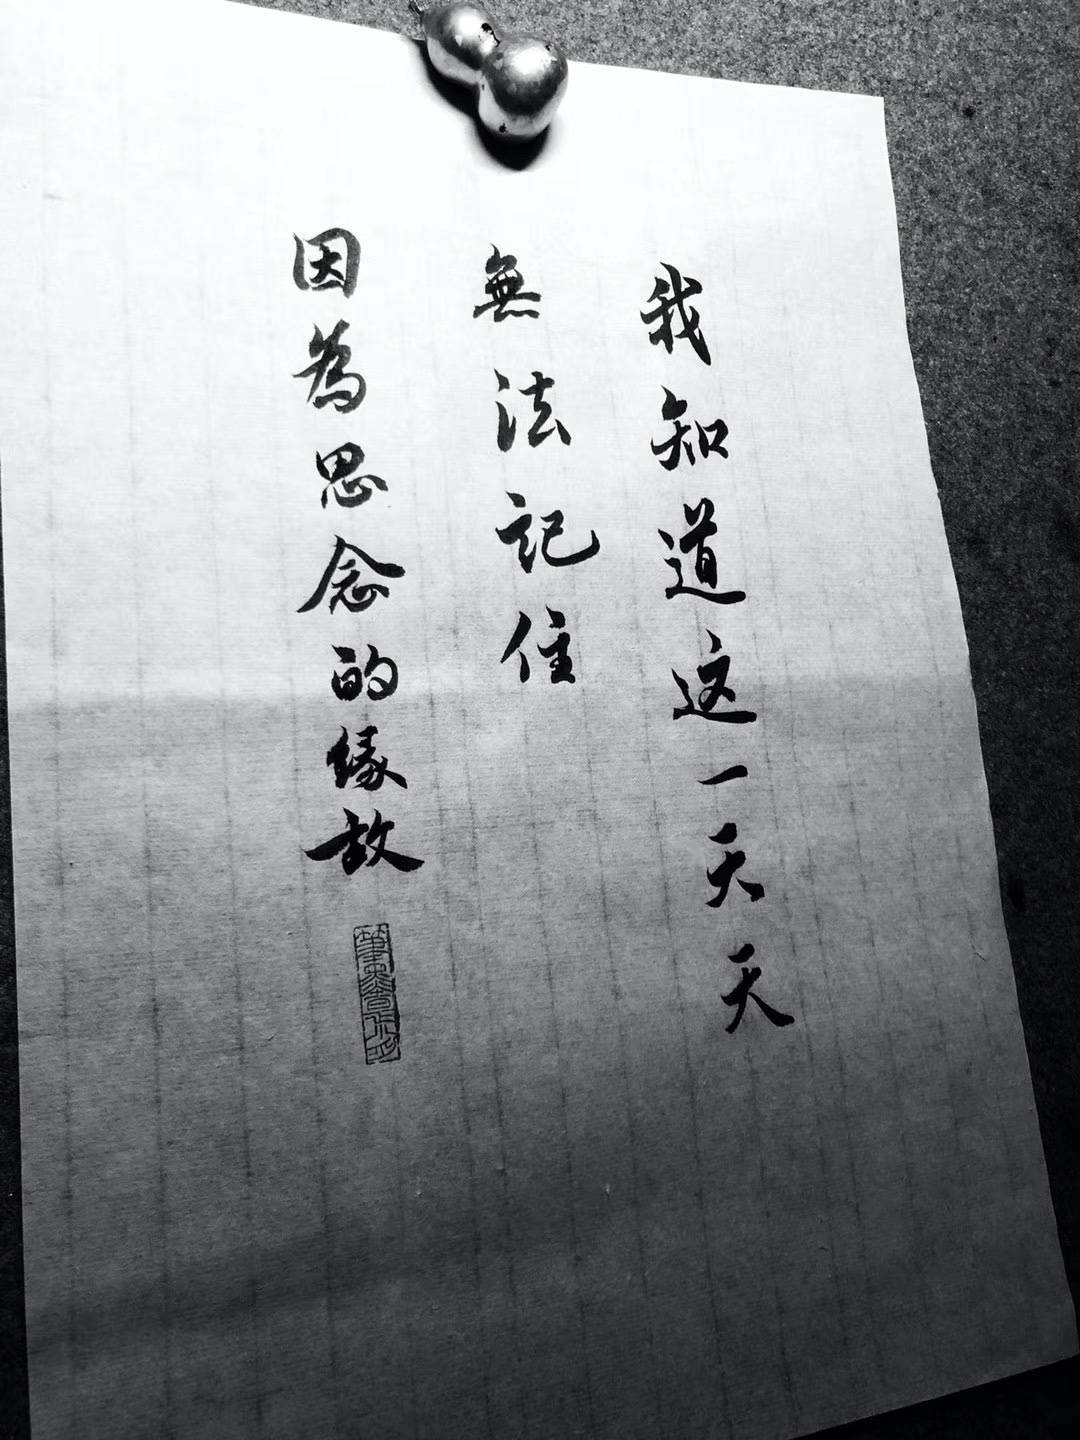 我知道这一天天
無法記住
因為思念的緣故